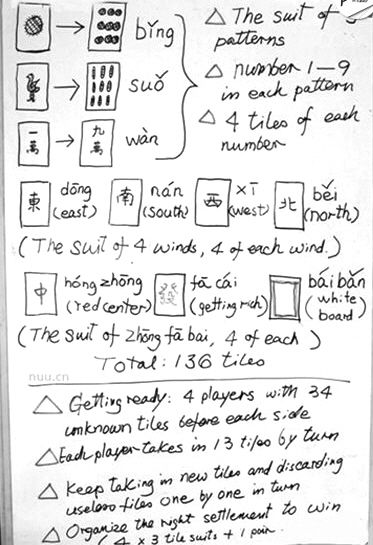 bǐng
suǒ
一萬 九萬 wàn
△ The suit of
patterns
△ number 1-9
in each pattern
△ 4 tiles of each
number
東 dōng (east) 南 nán (south) 西 xī (west) 北 běi (north)
(The suit of 4 winds, 4 of each wind.)
中 hóng zhōng (red center) 發 fā cái (getting rich) bái bǎn (white board)
(The suit of zhōng fā bai, 4 of each)
Total: 136 tiles
nuu.cn
△ Getting ready: 4 players with 34
unknown tiles before each side
△ Each player takes in 13 tiles by turn
△ Keep taking in new tiles and discarding
useless tiles one by one in turn
△ Organize the right settlement to win
(4 x 3 tile suits + 1 pair.